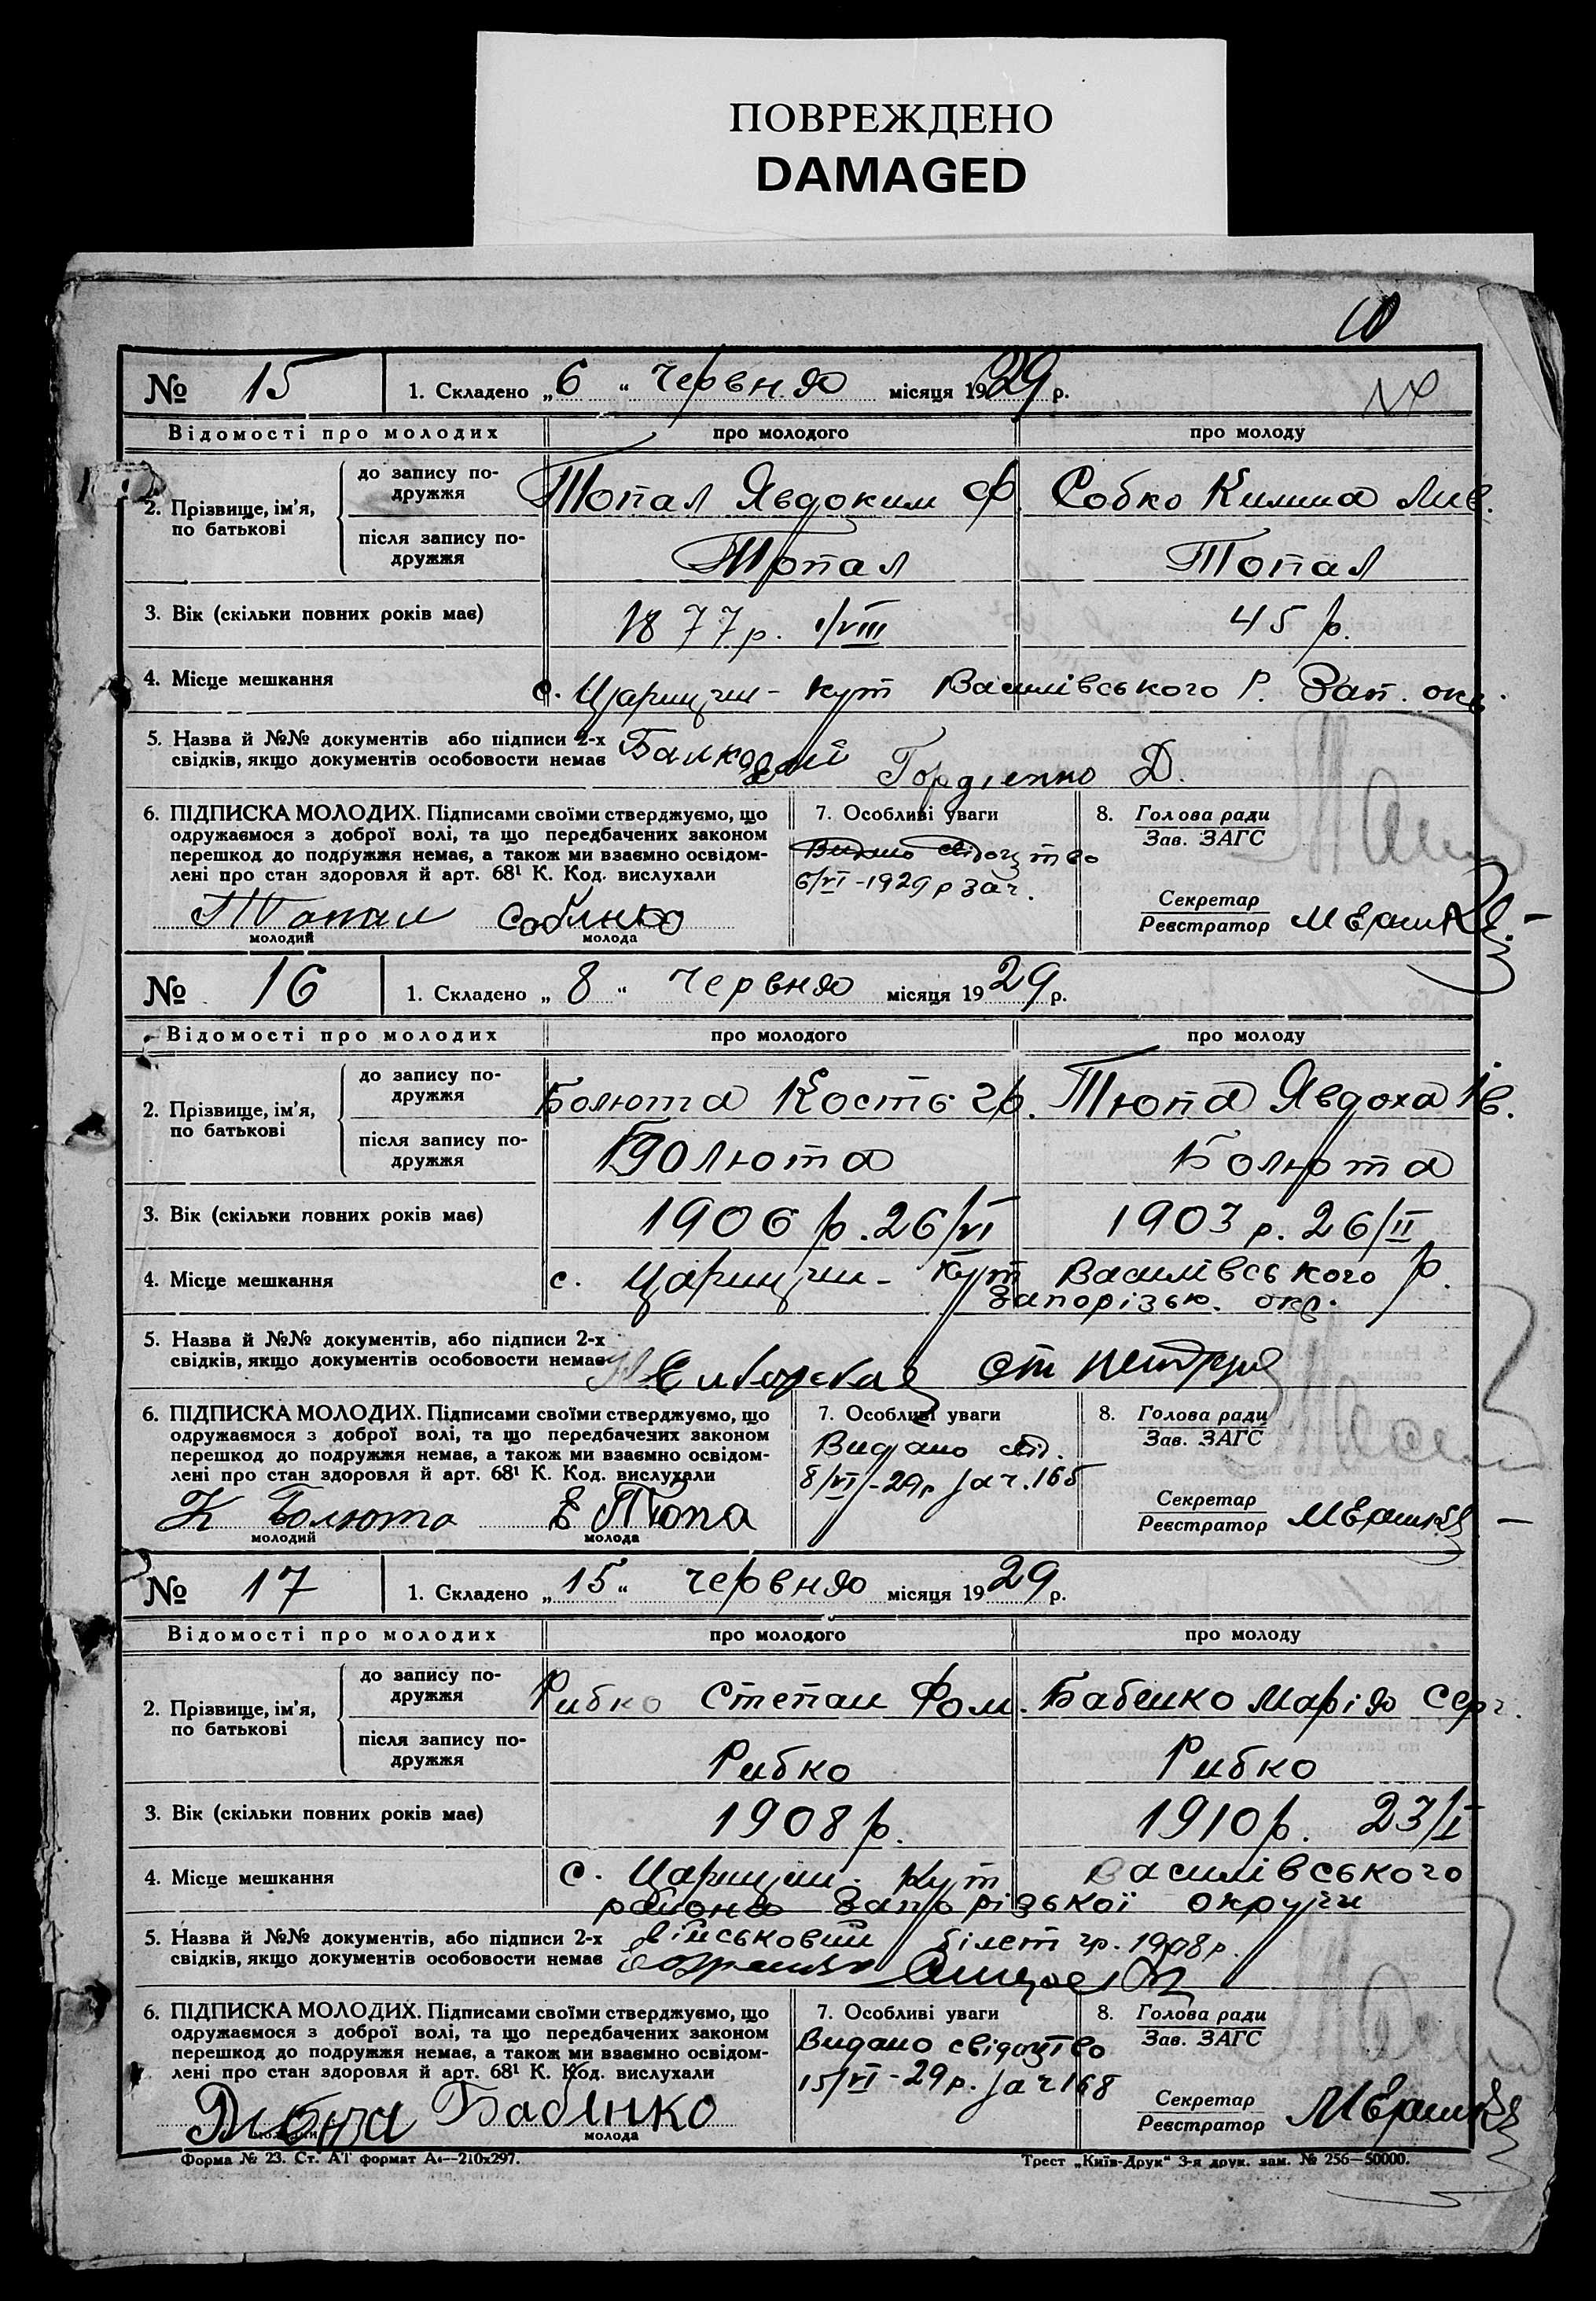 ПОВРЕЖДЕНО
DAMAGED
№ 15 1. Складено „6“ Червня місяця 1929 р.
Відомості про молодих про молодого про молоду
2. Прізвище, ім'я, по батькові
до запису по-
дружжя
Топал Явдоким Ф. Собко Килина
після запису по-
дружжя
Топал Топал
3. Вік (скільки повних років має) 1877 р. 1/VIII 45 р.
4. Місце мешкання с. Царицин-Кут Василівського Р. Зап. окр.
5. Назва й №№ документів або підписи 2-х
свідків, якщо документів особовости немає
Гордіенко Д.
6. ПІДПИСКА МОЛОДИХ. Підписами своїми стверджуємо, що
одружаємося з доброї волі, та що передбачених законом
перешкод до подружжя немає, а також ми взаємно освідом-
лені про стан здоровля й арт. 68¹ К. Код. вислухали
Топал
молодий молода
7. Особливі уваги
Видано свідоцтво
6/VI-1929 р за ч.
8. Голова ради
Зав. ЗАГС
Секретар
Реєстратор
№ 16 1. Складено „8“ Червня місяця 1929 р.
Відомості про молодих про молодого про молоду
2. Прізвище, ім'я, по батькові
до запису по-
дружжя
Болюта Кость Гр. Тюпа Явдоха Ів.
після запису по-
дружжя
Болюта Болюта
3. Вік (скільки повних років має) 1906 р. 26/VI 1903 р. 26/II
4. Місце мешкання с. Царицин-Кут Василівського р.
Запорізьк. окр.
5. Назва й №№ документів, або підписи 2-х
свідків, якщо документів особовости немає
6. ПІДПИСКА МОЛОДИХ. Підписами своїми стверджуємо, що
одружаємося з доброї волі, та що передбачених законом
перешкод до подружжя немає, а також ми взаємно освідом-
лені про стан здоровля й арт. 68¹ К. Код. вислухали
К Болюта Е Тюпа
молодий молода
7. Особливі уваги
Видано свід.
8/VI-29 р за ч. 165
8. Голова ради
Зав. ЗАГС
Секретар
Реєстратор
№ 17 1. Складено „15“ червня місяця 1929 р.
Відомості про молодих про молодого про молоду
2. Прізвище, ім'я, по батькові
до запису по-
дружжя
Рибко Степан Фом. Бабенко Марія Серг.
після запису по-
дружжя
Рибко Рибко
3. Вік (скільки повних років має) 1908 р. 1910 р. 23/I
4. Місце мешкання с. Царицин-Кут Василівського
району Запорізької округи
5. Назва й №№ документів, або підписи 2-х
свідків, якщо документів особовости немає
військовий білет гр. 1908 р.
6. ПІДПИСКА МОЛОДИХ. Підписами своїми стверджуємо, що
одружаємося з доброї волі, та що передбачених законом
перешкод до подружжя немає, а також ми взаємно освідом-
лені про стан здоровля й арт. 68¹ К. Код. вислухали
Бабенко
молодий молода
7. Особливі уваги
Видано свідоцтво
15/VI-29 р. за ч 168
8. Голова ради
Зав. ЗАГС
Секретар
Реєстратор
Форма № 23. Ст. АТ формат А4—210х297. Трест „Київ-Друк“ 3-я друк. зам. № 256—50000.